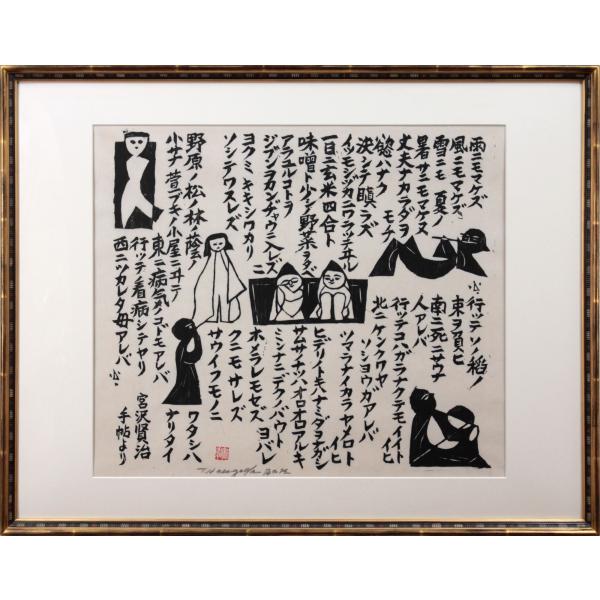 雨ニモマケズ
風ニモマケズ
雪ニモ 夏ノ
暑サニモマケヌ
丈夫ナカラダヲ
モチ
慾ハナク
決シテ瞋ラズ
イツモシヅカニワラッテヰル
一日ニ玄米四合ト
味噌ト少シノ野菜ヲタベ
アラユルコトヲ
ジブンヲカンヂャウニ入レズニ
ヨクミキキシワカリ
ソシテワスレズ
野原ノ松ノ林ノ蔭ノ
小サナ萱ブキノ小屋ニヰテ
東ニ病気ノコドモアレバ
行ッテ看病シテヤリ
西ニツカレタ母アレバ
行ッテソノ稲ノ
束ヲ負ヒ
南ニ死ニサウナ
人アレバ
行ッテコハガラナクテモイイトイヒ
北ニケンクワヤ
ソショウガアレバ
ツマラナイカラヤメロトイヒ
ヒデリノトキハナミダヲナガシ
サムサノナツハオロオロアルキ
ミンナニデクノバウトヨバレ
ホメラレモセズ
クニモサレズ
サウイフモノニ
ワタシハ
ナリタイ
宮沢賢治
手帖より